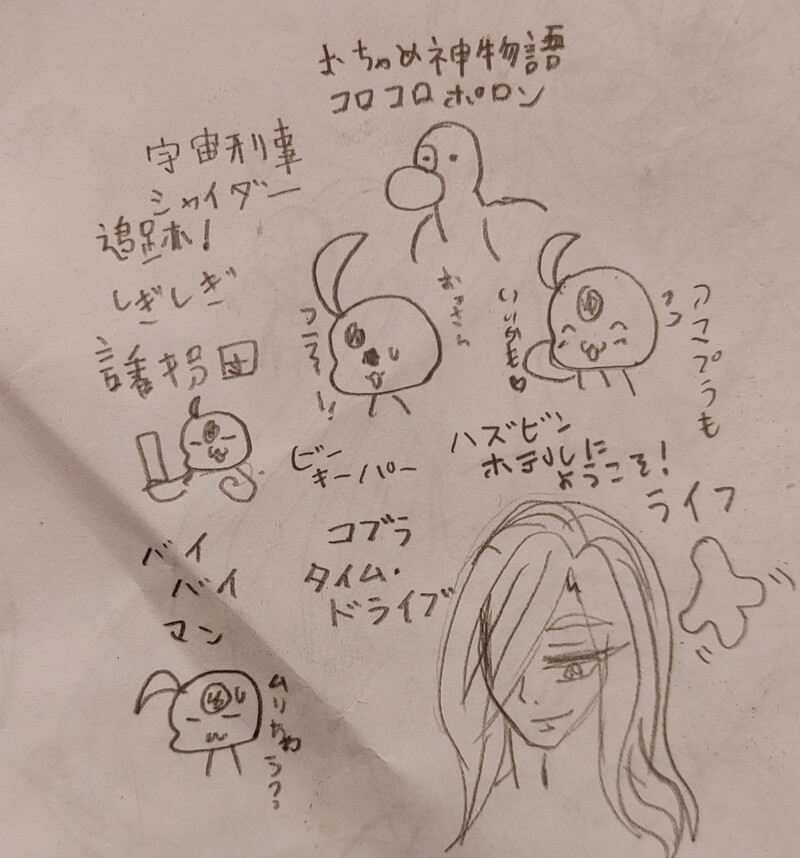 おちゃめ神物語
コロコロポロン
宇宙刑事
シャイダー
追跡!
しぎしぎ
誘拐団
おっさん
いいかも♡
アマプラも
ビー
キーパー
ハズビン
ホテルに
ようこそ!
ライフ
コブラ
タイム・
ドライブ
バイ
バイ
マン